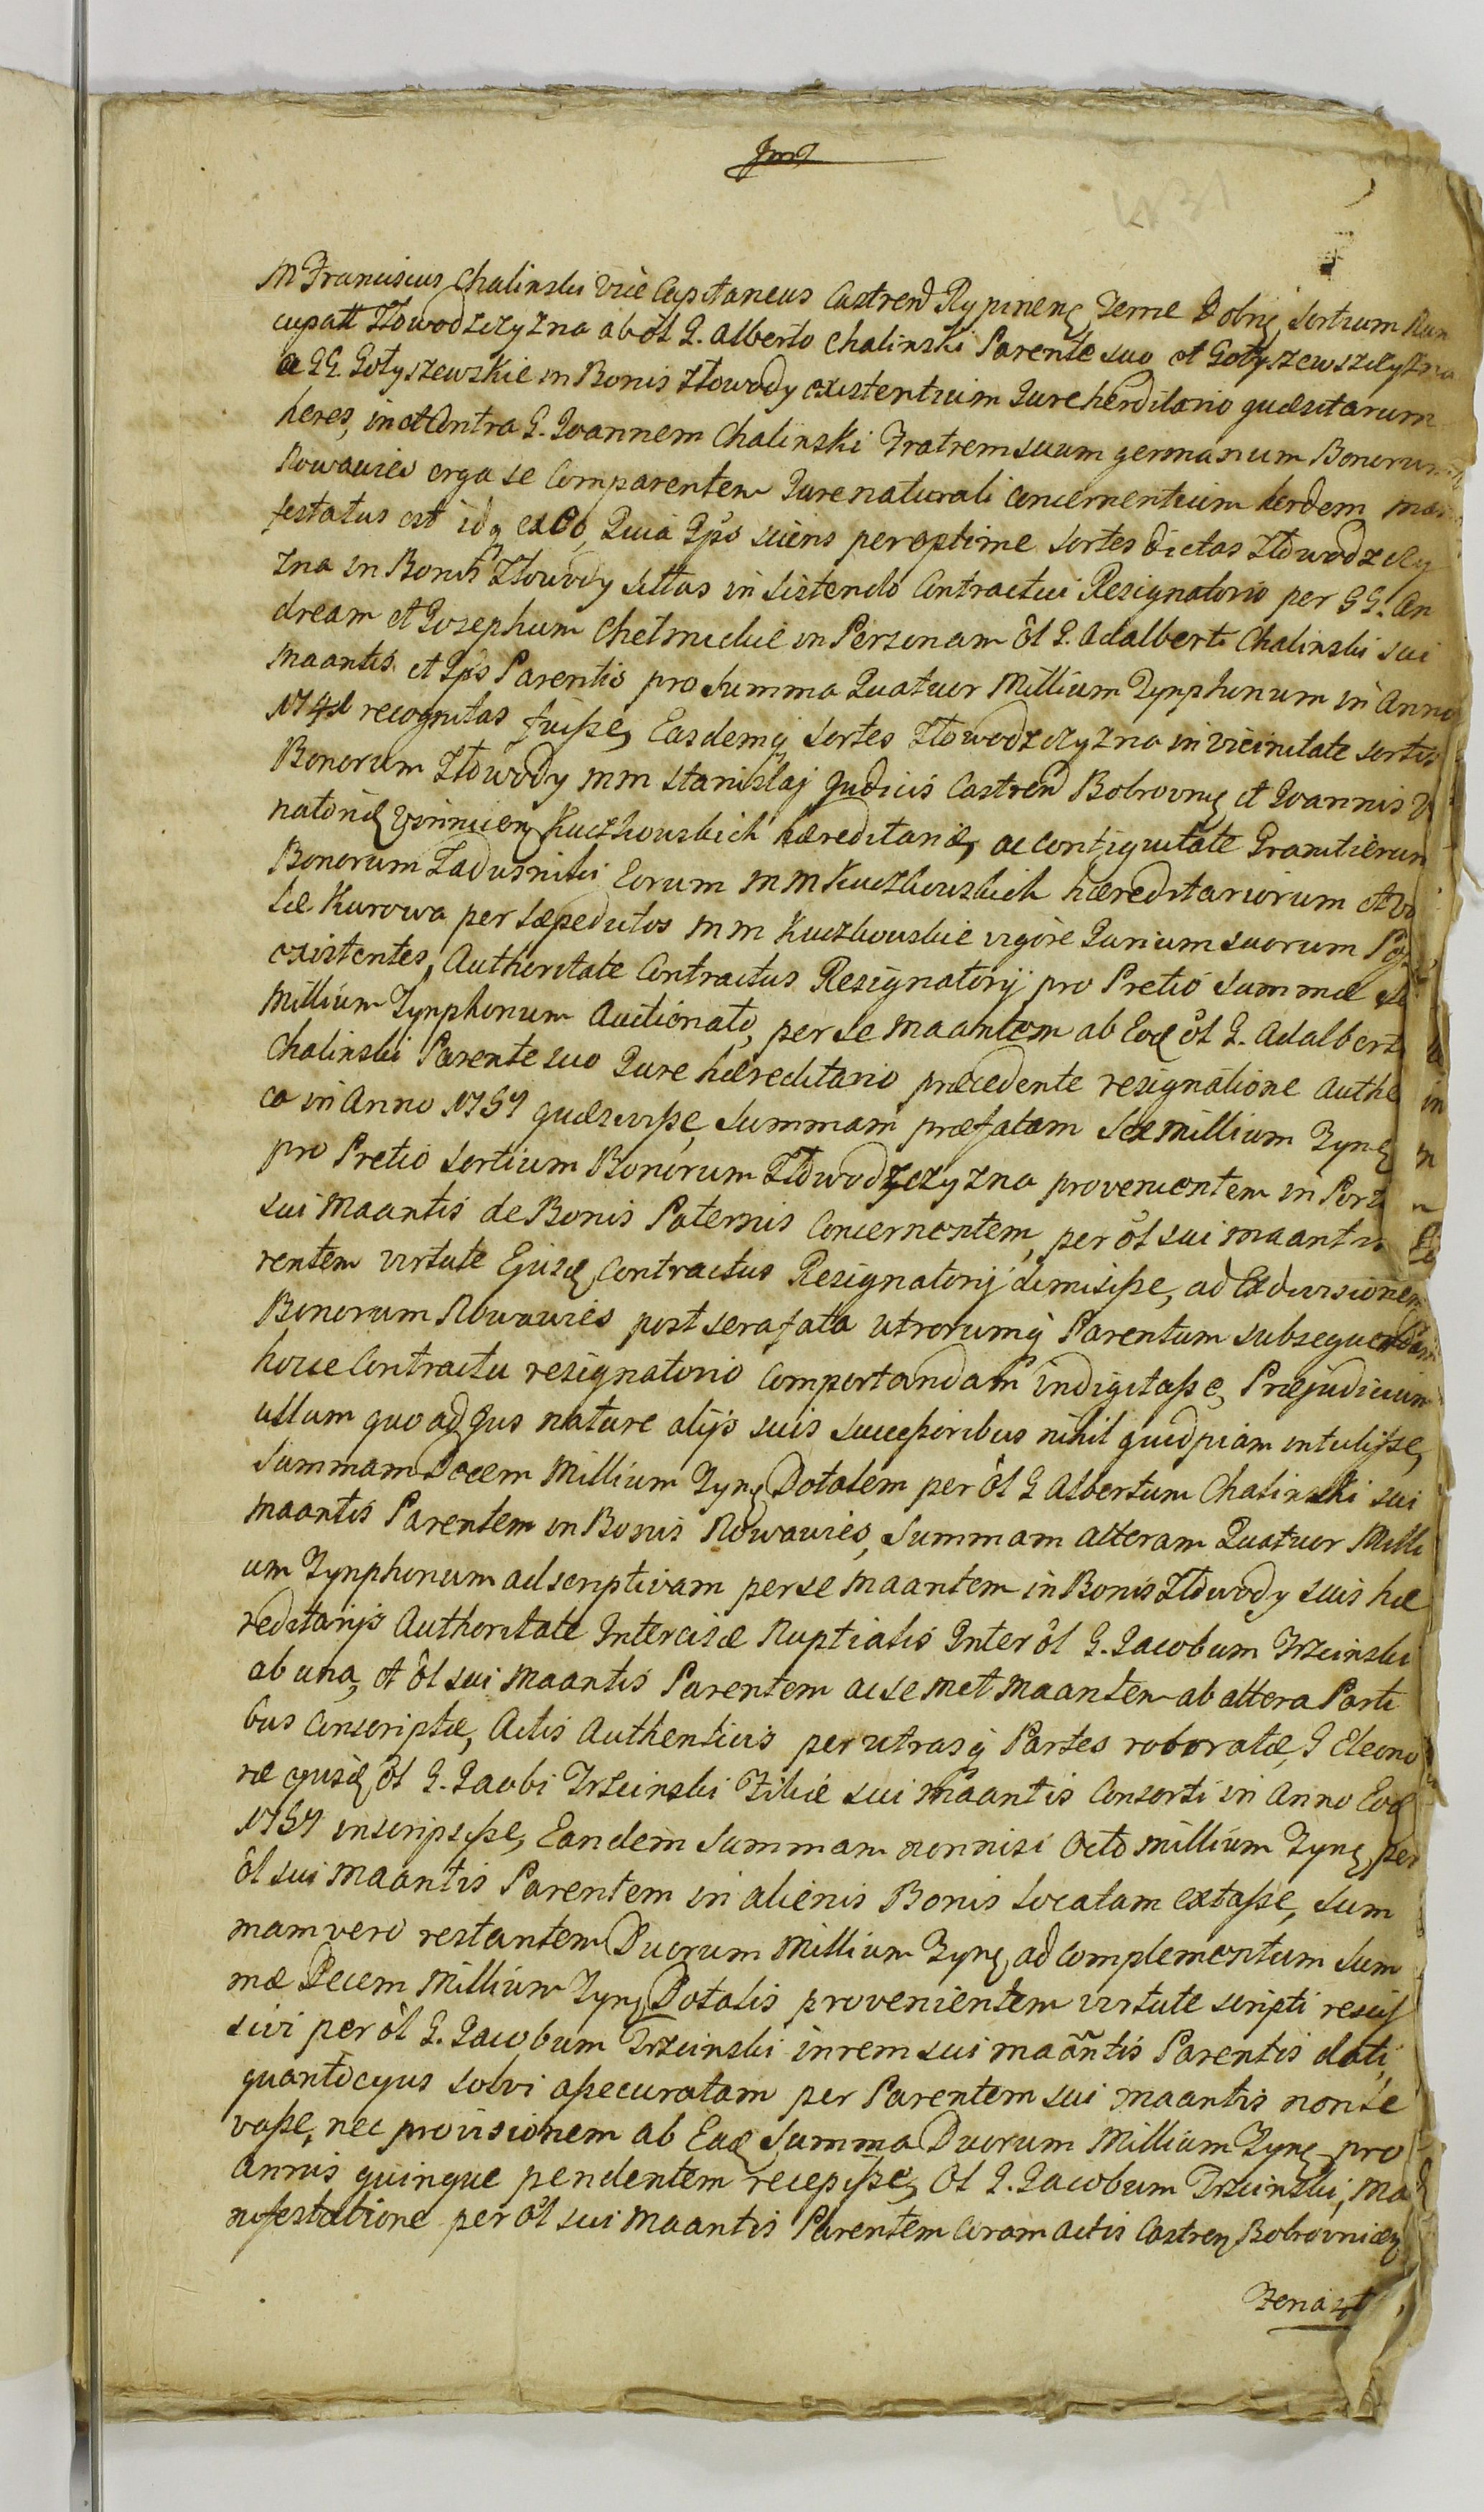 M Franciscus Chalinski Vice Capitaneus Castren Rypinen Terrae Dobrz Sortium Nun
cupatt Złowodzczyzna ab ol G. Alberto Chalinski Parente suo et Gołyszewszczyzna
a GG. Gołyszewskie in Bonis Złowody existentium Jure herditario quaesitarum
heres, in et contra G. Joannem Chalinski Fratrem suum germanum Bonorum
Nowawies erga se Comparentem Jure naturali concernentium herdem
festatus est idq ex eo, Quia Ips sciens peroptime Sortes dictas Złowodzczy
zna in Bonis Złowody sittas in sistendo Contractui Resignatorio per GG. An
dream et Josephum Chełmickie in Personam ol G. Adalberti Chalinski sui
Maantis et Ips Parentis pro Summa Quatuor Millium Tynphonum in Anno
recognitas fuisse, Easdemq Sortes Złowodzczyzna in vicinitate sortis
Bonorum Złowody MM Stanislaj Judicis Castren Bobrovn et Joannis
natoris Kuczkowskich haereditariae, ac contiguitate Granitierum
Bonorum Zaduszniki Eorum MM Kuczkowskich haereditariorum et
Kurowa per saepedictos MM Kuczkowskie vigore Jurium suorum
existentes, Authoritate Contractus Resignatorij pro Pretio Summae
Millium Tynphonum Auctionato, per se Maantem ab Eod ol G. Adalberto
Chalinski Parente suo Jure haereditario praecedente resignatione Authe
co in Anno 1757 quaesivisse, Summam praefatam Sex Millium Tynf
pro Pretio Sortium Bonorum Złowodzczyzna provenientem in Pors
sui Maantis de Bonis Paternis Concernentem, per ol sui Maantis
rentem virtute Ejusd Contractus Resignatorij dimisisse, ad Exdivisionem
Bonorum Nowawies post sera fata utrorumq Parentum subsequendam
hocce Contractu resignatorio Comportandam indigitasse, Praejudicium
ullum quoad Jus naturae alijs suis Successoribus nihil quidpiam intulisse,
Summam Decem Millium Tynf Dotalem per ol G Albertum Chalinski sui
Maantis Parentem in Bonis Nowawies, Summam alteram Quatuor Milli
um Tynphonum adscriptivam per se Maantem in Bonis Złowody suis hae
reditarijs Authoritate Intercisae Nuptialis Inter ol G. Jacobum Trzcinski
ab una, et ol sui Maantis Parentem ac semet Maantem ab altera Parti
bus Conscriptae, Actis Authenticis per utrasq Partes roboratae, G Eleono
rae ejusd ol G. Jacobi Trzcinski Filiae sui Maantis Consorti in Anno Eod
1757 inscripsisse, Eandem Summam nonnisi Octo Millium Tynf per
ol sui Maantis Parentem in alienis Bonis Locatam extasse, Sum
mam vero restantem Duorum Millium Tynf ad Complementum Sum
mae Decem Millium Tynf Dotalis provenientem virtute scripti rescis
sivi per ol G. Jacobum Trzcinski in rem sui Maantis Parentis dati,
quantocyus solvi assecuratam per Parentem sui Maantis non le
vasse, nec provisionem ab Ead Summa Duorum Millium Tynf pro
annis quinque pendentem recepisse, Ol G. Jacobum Trzcinski, Ma
nifestatione per ol sui Maantis Parentem Coram Actis Castren Bobrovnicen